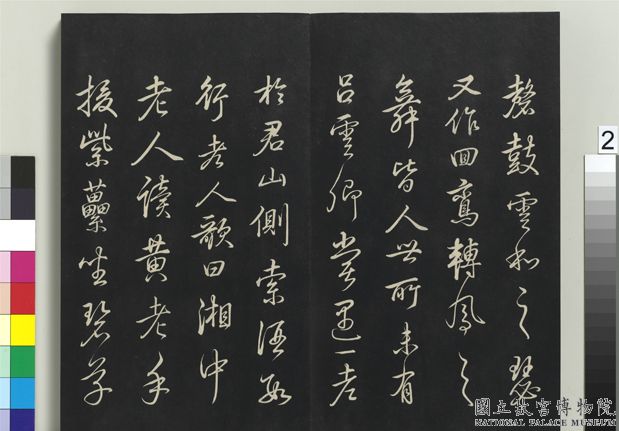 磬鼓雲和之瑟
又作回鸞轉鳳之
舞皆人世所未有
呂雲卿嘗遇一老
於君山側索酒數
行老人歌曰湘中
老人讀黃老手
援紫藟坐碧草
2
國立故宮博物院
NATIONAL PALACE MUSEUM